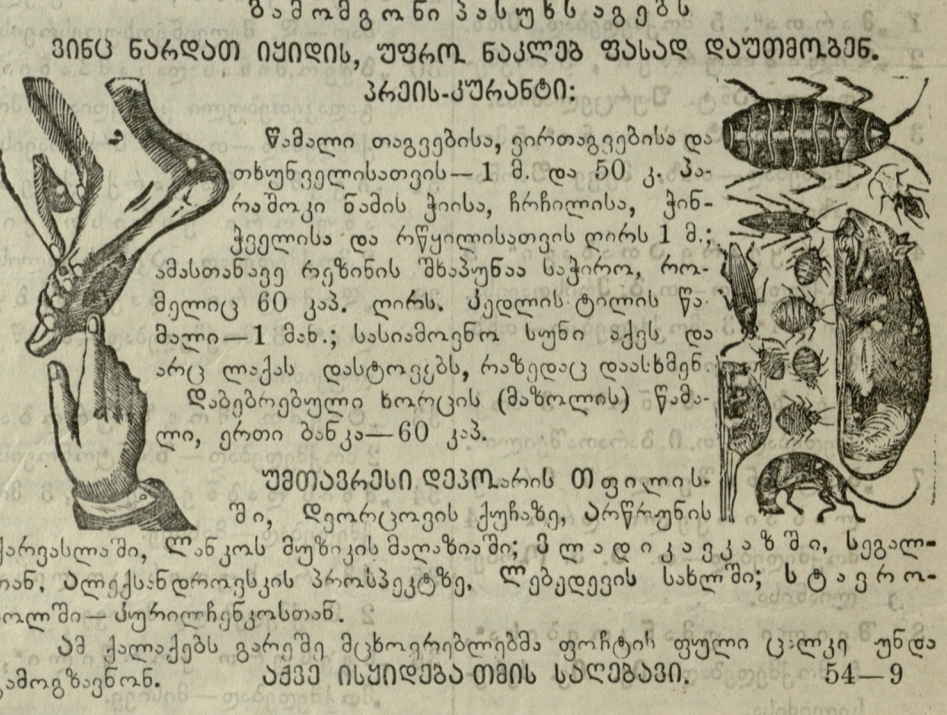 გამომგონი პასუხს აგებს
ვინც ნარდათ იყიდის, უფრო ნაკლებ ფასად დაუთმობენ.
პრეის-კურანტი:
წამალი თაგვებისა, ვირთაგვებისა და
თხუნველისათვის—1 მ. და 50 კ. პა-
რაშოკი ნამის ჭიისა, ჩრჩილისა, ჭინ-
ჭველისა და რწყილისათვის ღირს 1 მ.;
ამასთანავე რეზინის შხაპუნაა საჭირო, რო-
მელიც 60 კაპ. ღირს. კედლის ტილის წა-
მალი—1 მან.; სასიამოვნო სუნი აქვს და
არც ლაქას დასტოვებს, რაზედაც დაასხმენ.
დაბებრებული ხორცის (მაზოლის) წამა-
ლი, ერთი ბანკა—60 კაპ.
უმთავრესი დეპო არის თფილის-
ში, დვორცოვის ქუჩაზე, არწრუნის
ქარვასლაში, ლანკოს მუზიკის მაღაზიაში; ვლადიკავკაზში, სეგალ-
თან, ალექსანდროვსკის პროსპექტზე, ლებედევის სახლში; სტავრო-
პოლში—კურილჩენკოსთან.
ამ ქალაქებს გარეშე მცხოვრებლებმა ფოჩტის ფული ცალკე უნდა
გამოგზავნონ. აქვე ისყიდება თმის საღებავი. 54—9